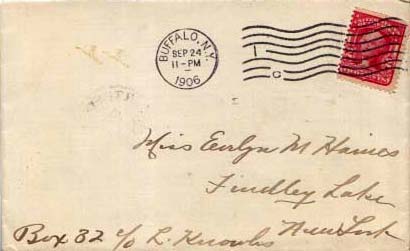 BUFFALO, N.Y.
SEP 24
11-PM
1906
1
C
Miss Evelyn M Haines
Findley Lake
New York
Box 32 c/o L. Knowles